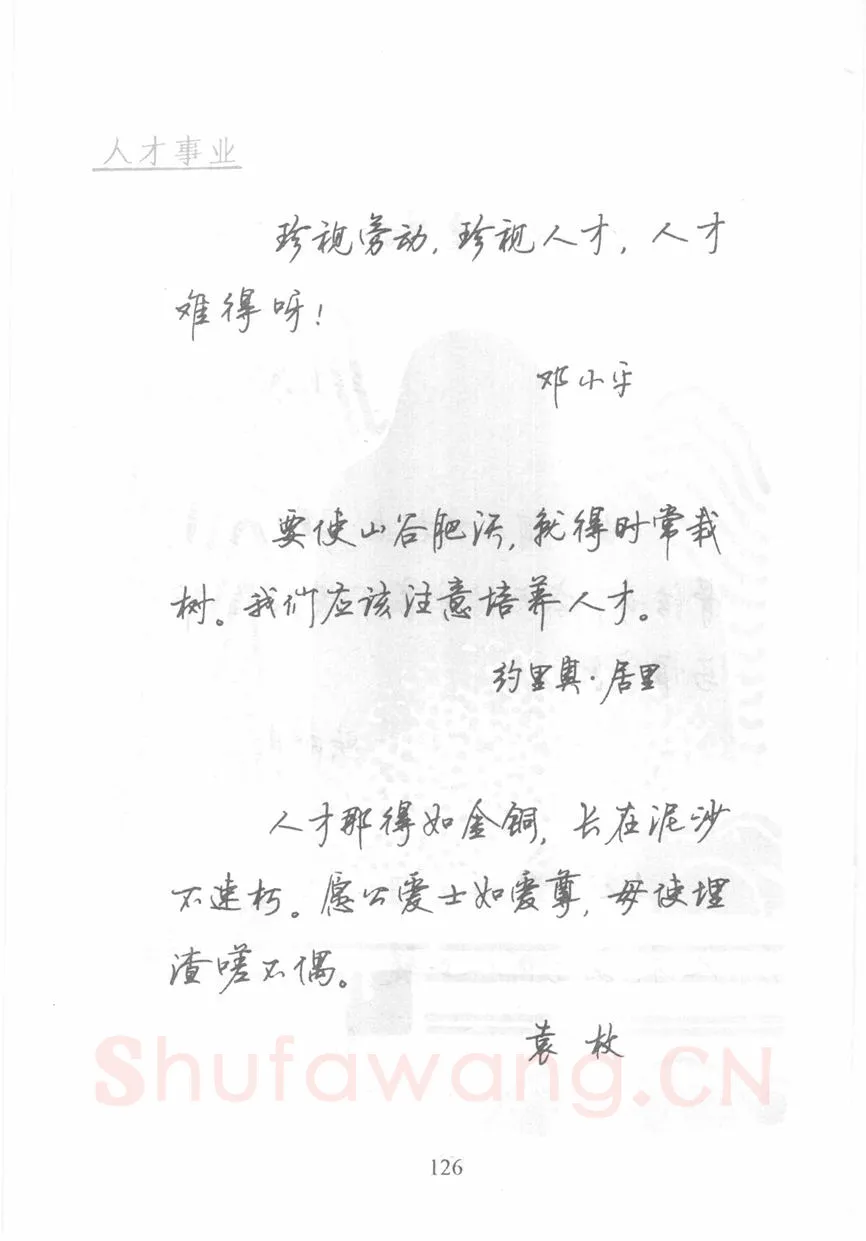 人才事业
珍视劳动,珍视人才,人才
难得呀!
邓小平
要使山谷肥沃,就得时常栽
树。我们应该注意培养人才。
约里奥·居里
人才那得如金铜,长在泥沙
不速朽。愿公爱士如爱尊,毋使埋
渣嗟不偶。
袁枚
Shufawang.CN
126